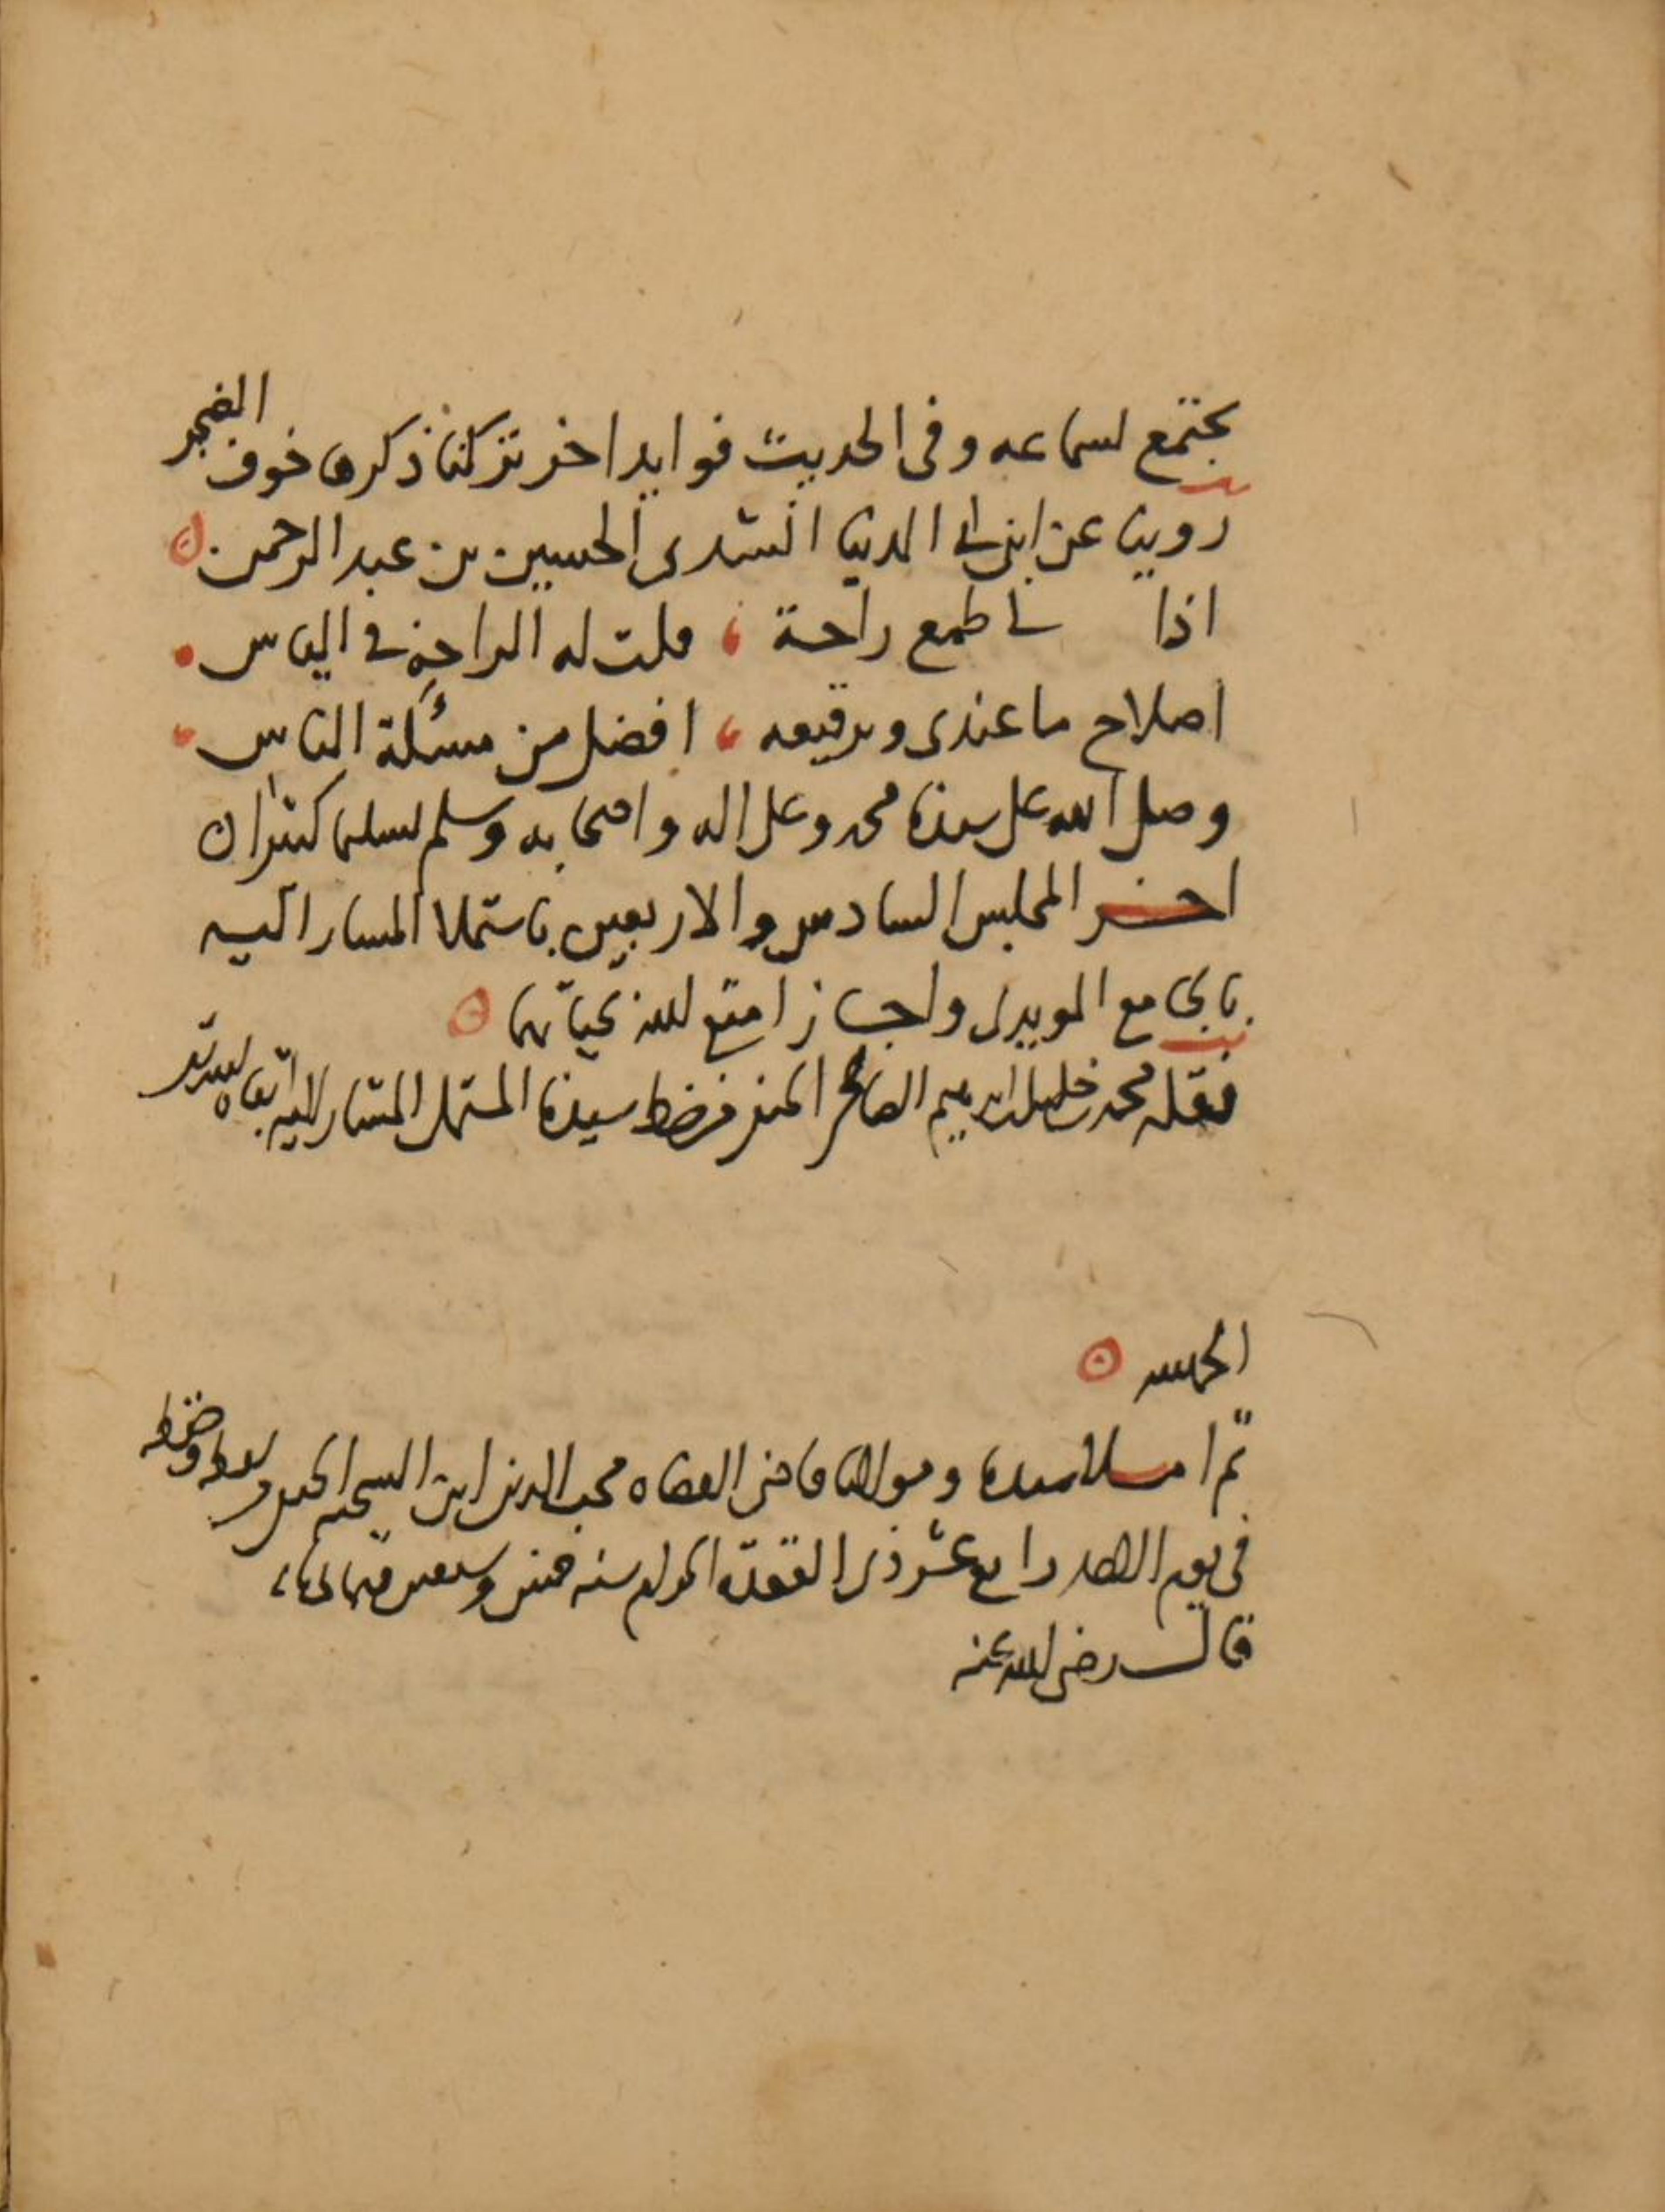 يجتمع لسماعه وفى الحديث فوايد اخر تركنا ذكرها خوف الضجر
روينا عن ابن ابى الدنيا انشدى الحسين بن عبد الرحمن
اذا لى طمع راحة قلت له الراحة فى الياس
اصلاح ما عندى وترقيعه افضل من مسئلة الناس
وصلى الله على سيدنا محمد وعلى اله واصحابه وسلم تسليما كثيرا
اخر المجلس السادس والاربعين باستملا المشار اليه
مع المويدى واجاز امتع الله بحياتهما
نقله محمد خليل ابرهيم الصالحى من خط سيدنا المستملى المشار اليه ابقاه الله
الحمد لله
ثم املا سيدنا ومولانا قاضى القضاه محب الدين ابن الشحنه الحنفى
فى يوم الاحد رابع عشر ذى القعدة الحرام سنه وسبعين وثمانمائة
قال رضى الله عنه